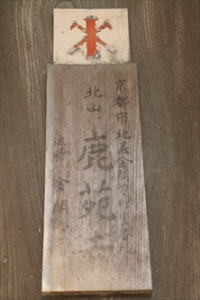 京都市北区金閣寺町
北山
鹿苑寺
通称 金閣